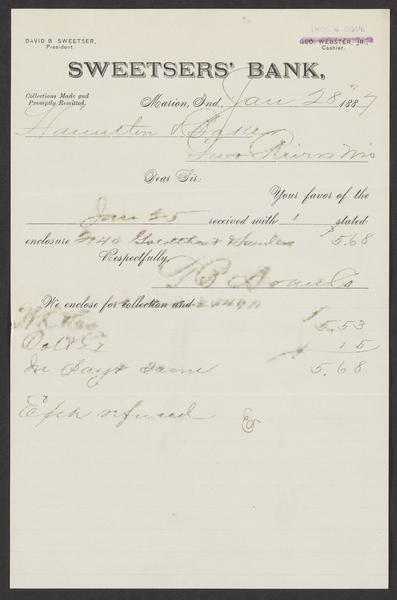 DAVID B. SWEETSER,
President.
GEO. WEBSTER, JR.,
Cashier.
SWEETSERS' BANK,
Collections Made and
Promptly Remitted.
Marion, Ind., Jan 28" 1887
Hamilton &
Two Rivers
Dear Sir:
Your favor of the
Jan 25 received with 1 stated
enclosure $ 5.68
Respectfully,
We enclose for collection and
$ 5.53
15
5.68
In Says Same
Exch refused